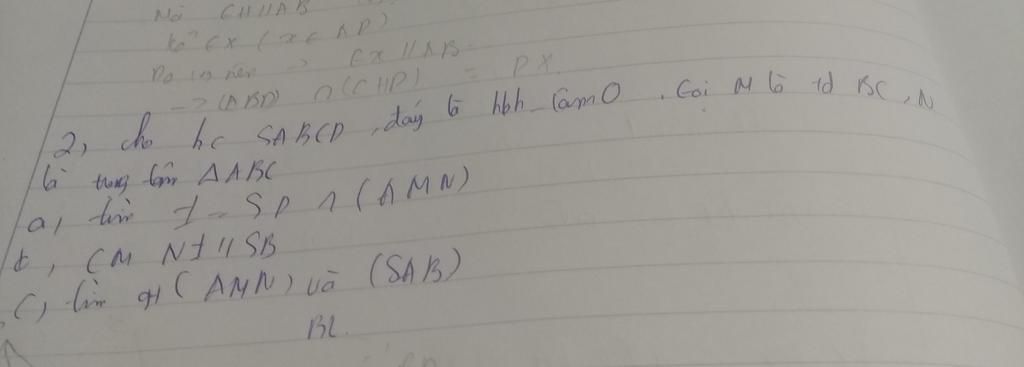 Nà CH // AB
kẻ Ex ( x ∈ AD)
→ Ex // AB
→ (ABD) ∩ (CHD) = DX
2, cho hc SABCD, đáy là hbh tâm O. Gọi M là td BC, N
là trọng tâm ΔABC
a, tìm I = SD ∩ (AMN)
b, CM NI // SB
c, tìm gt (AMN) và (SAB)
BC.